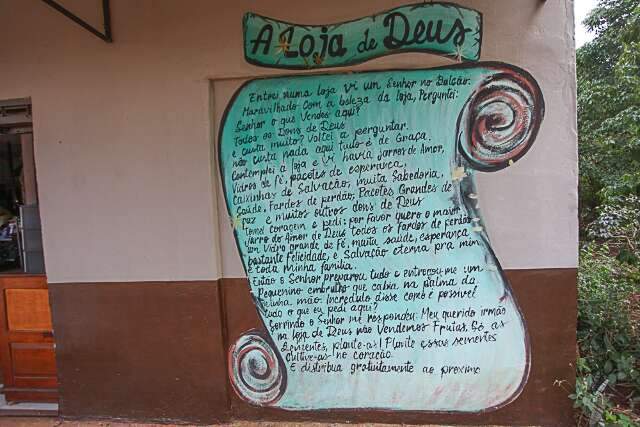 A Loja de Deus
Entrei numa loja vi um Senhor no Balcão.
Maravilhado com a beleza da loja, Perguntei:
Senhor o que Vendes aqui?
Todos os Dons de Deus
e custa muito? Voltei a perguntar.
não custa nada aqui tudo é de Graça.
Contemplei a loja e vi havia jarros de Amor,
Vidros de Fé, pacotes de esperança,
caixinhas de Salvação, muita Sabedoria,
Saúde, Fardos de perdão, Pacotes Grandes de
paz e muitos outros dons de Deus
Tomei coragem e pedi: por favor quero o maior
jarro do Amor de Deus todos os Fardos de perdão
um Vidro grande de Fé, muita saúde, esperança
bastante Felicidade, e Salvação eterna pra mim
e toda minha família.
Então o Senhor preparou tudo e entregou me um
Pequenino embrulho que cabia na palma da
minha mão. Incrédulo disse como é possivel
tudo o que eu pedi aqui?
Sorrindo o Senhor me respondeu: Meu querido irmão
na loja de Deus não Vendemos Frutas. Só as
Sementes, plante-as! Plante essas sementes
Cultive-as no coração.
E distribua gratuitamente ao proximo